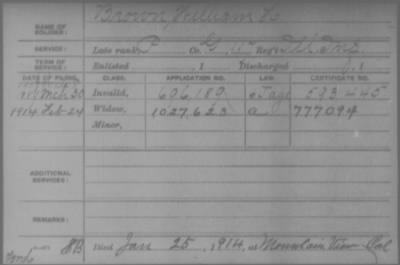 NAME OF SOLDIER: Brown, William
SERVICE: Late rank, P Co. G, Reg't Ill. Inf.
TERM OF SERVICE: Enlisted , 1 Discharged , 1
DATE OF FILING. CLASS. APPLICATION NO. LAW. CERTIFICATE NO.
Mch 20 Invalid, 606,189 593.445
1914 Feb 24 Widow, 1027,623 a 777094
Minor,
ADDITIONAL SERVICES:
REMARKS:
Died Jan 25, 1914, at Mountain View Cal